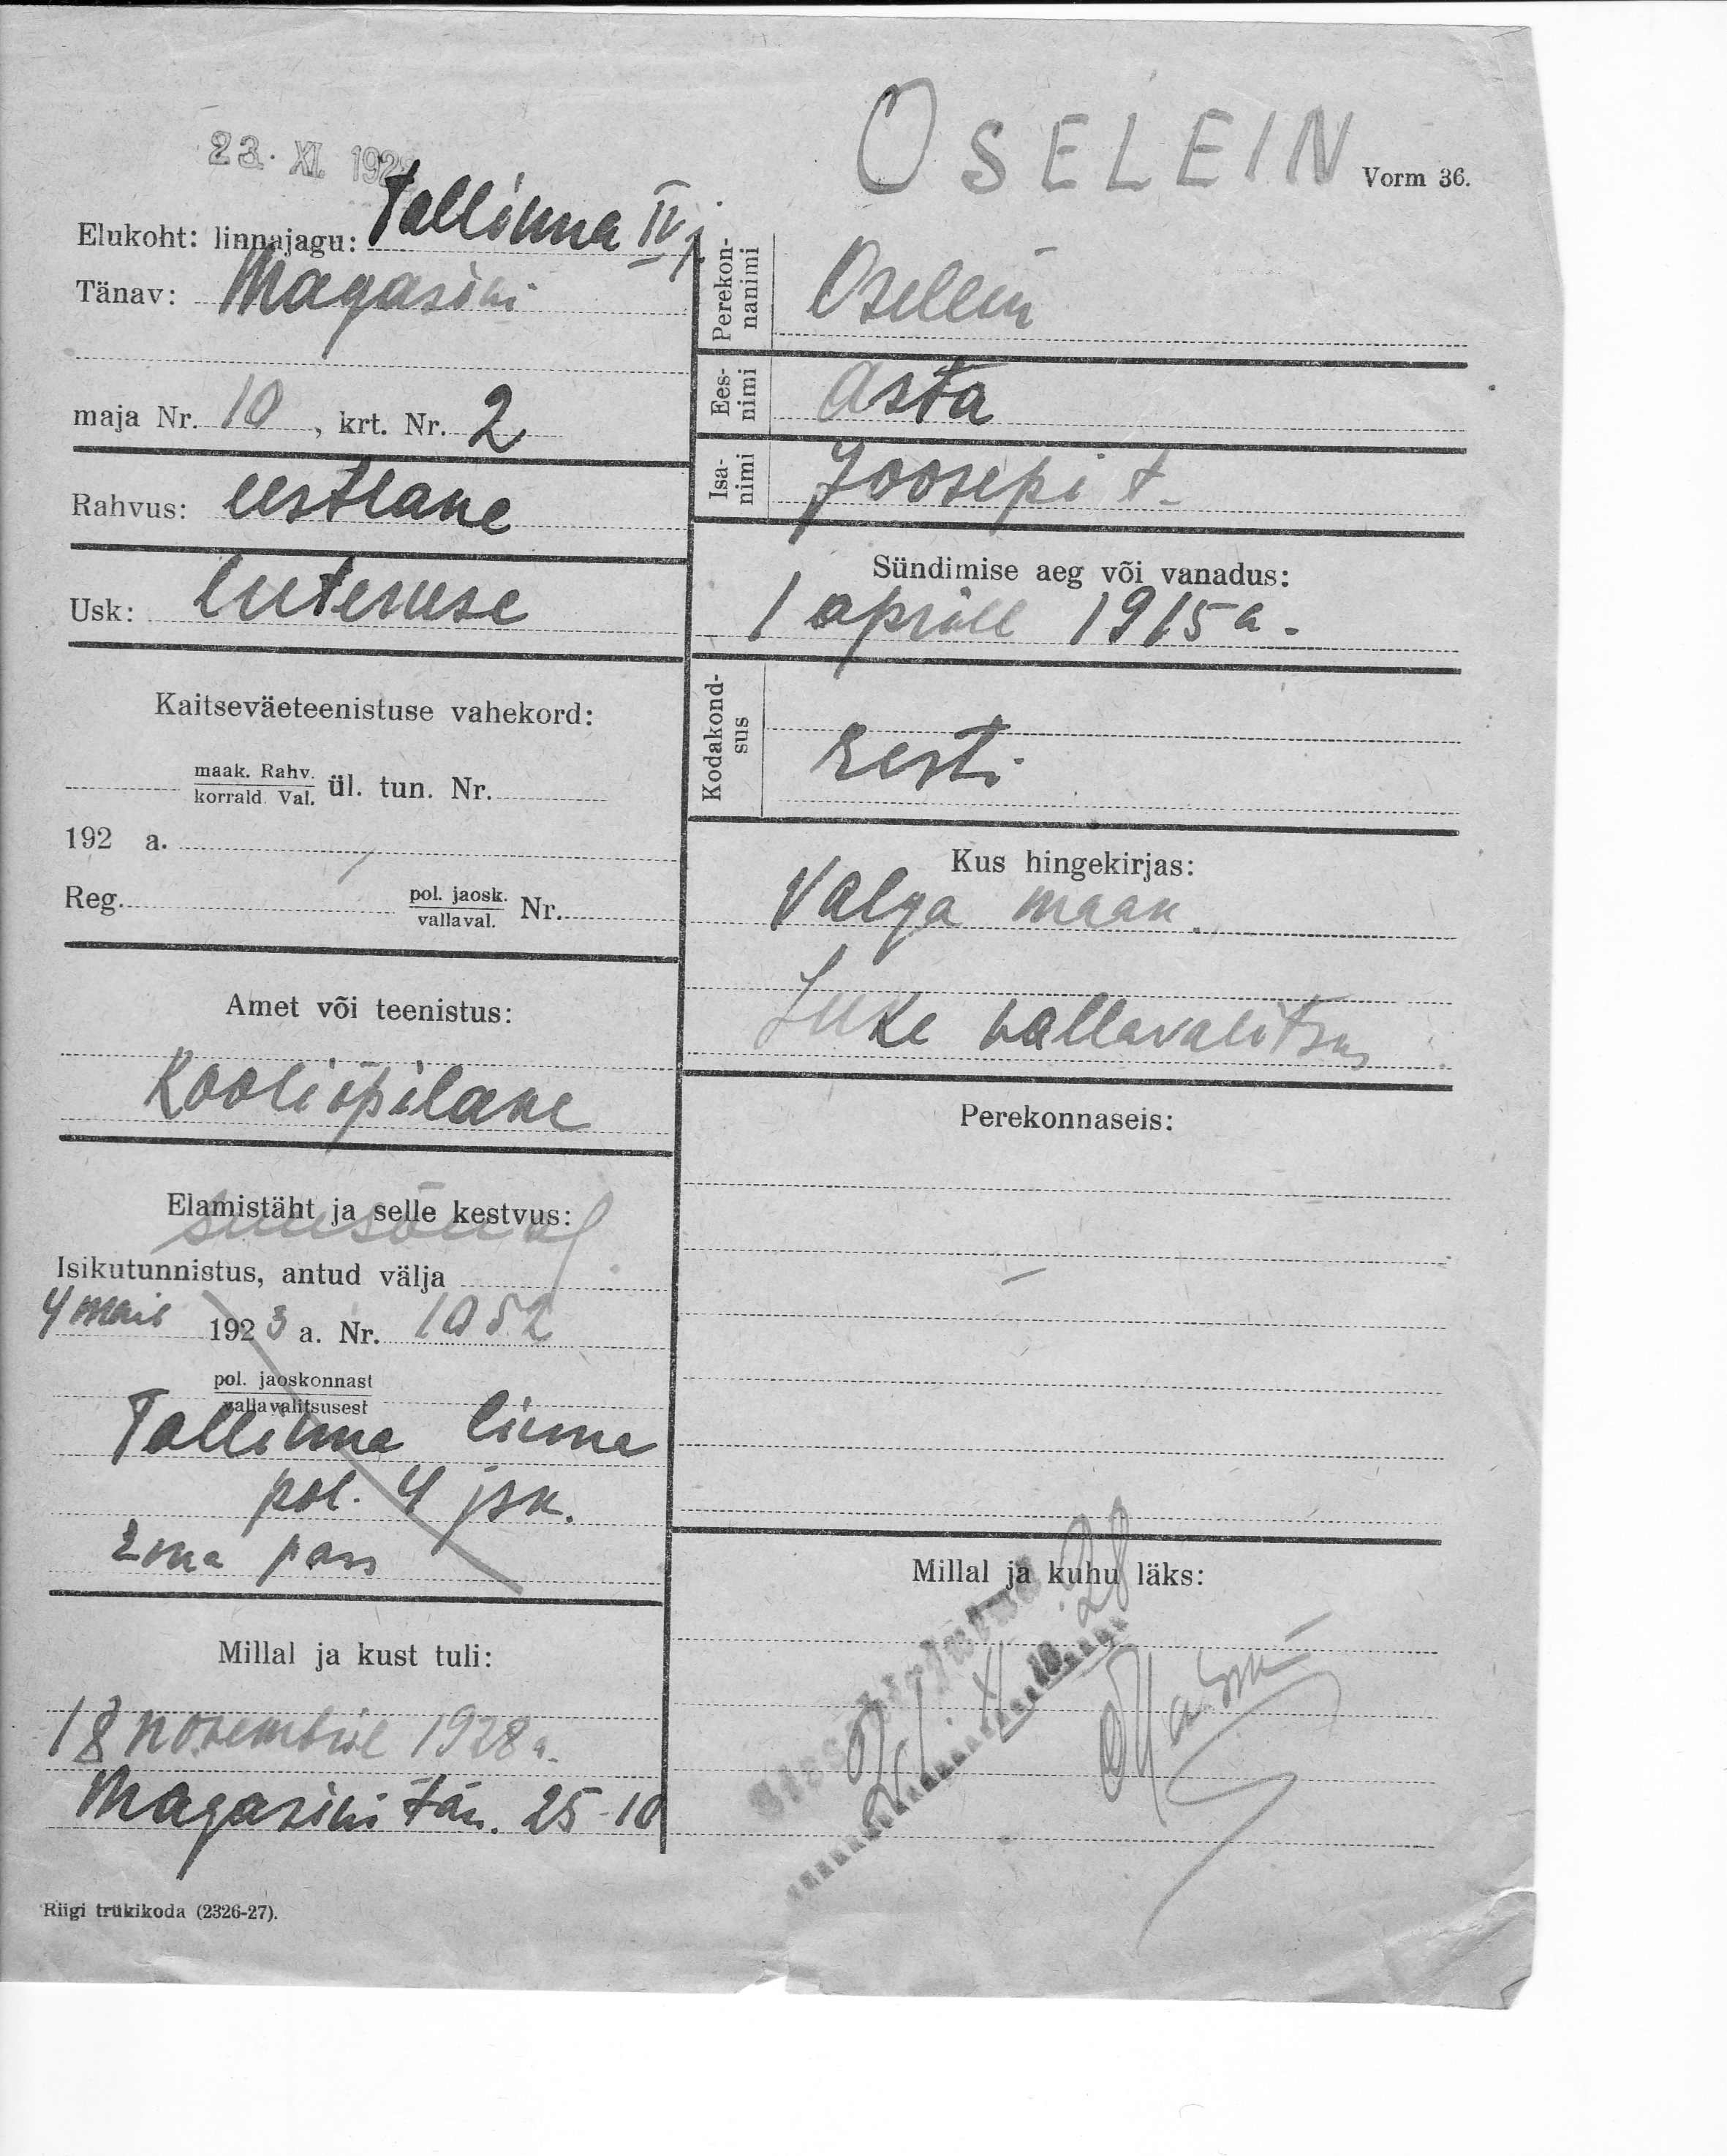 OSELEIN
23. XI. 192
Vorm 36.
Elukoht: linnajagu: Tallinna IV j
Tänav: Magasini
maja Nr. 10, krt. Nr. 2
Rahvus: eestlane
Usk: luteruse
Kaitseväeteenistuse vahekord:
maak. Rahv.
korrald. Val. ül. tun. Nr.
192 a.
Reg. pol. jaosk.
vallaval. Nr.
Amet või teenistus:
Kooliõpilane
Elamistäht ja selle kestvus:
suusõnal
Isikutunnistus, antud välja
4 mail 1923 a. Nr. 1052
pol. jaoskonnast
vallavalitsusest
Tallinna linna
pol. 4 jsk.
Ema pass
Millal ja kust tuli:
18 novembril 1928 a.
Magasini tän. 25-10
Riigi trükikoda (2326-27).
Perekon-
nanimi Oselein
Ees-
nimi Asta
Isa-
nimi Joosepi t.
Sündimise aeg või vanadus:
1 aprill 1915 a.
Kodakond-
sus Eesti
Kus hingekirjas:
Valga maak.
Luke vallavalitsus
Perekonnaseis:
—
Millal ja kuhu läks:
Sissekirjutud
XI 28